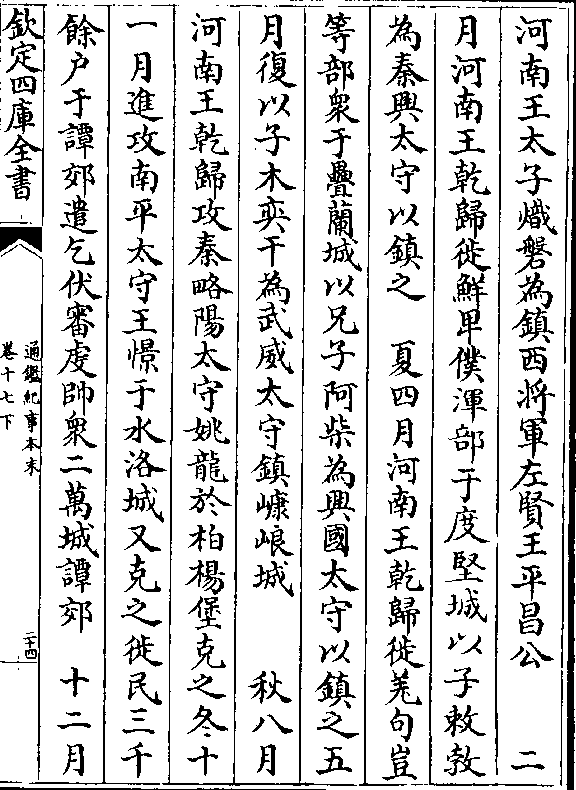 河南王太子熾磐為鎮西將軍左賢王平昌公　二
月河南王乾歸徙鮮卑僕渾部于度堅城以子敕勃
為秦興太守以鎮之　夏四月河南王乾歸徙羌句豈
等部衆于疊蘭城以兄子阿柴為興國太守以鎮之五
月復以子木奕干為武威太守鎮嵻㟍城　秋八月
河南王乾歸攻秦略陽太守姚龍於柏楊堡克之冬十
一月進攻南平太守王憬于水洛城又克之徙民三千
餘户于譚郊遣乞伏審虔帥衆二萬城譚郊　十二月
欽定四庫全書
通鑑紀事本末
卷十七下
二十四